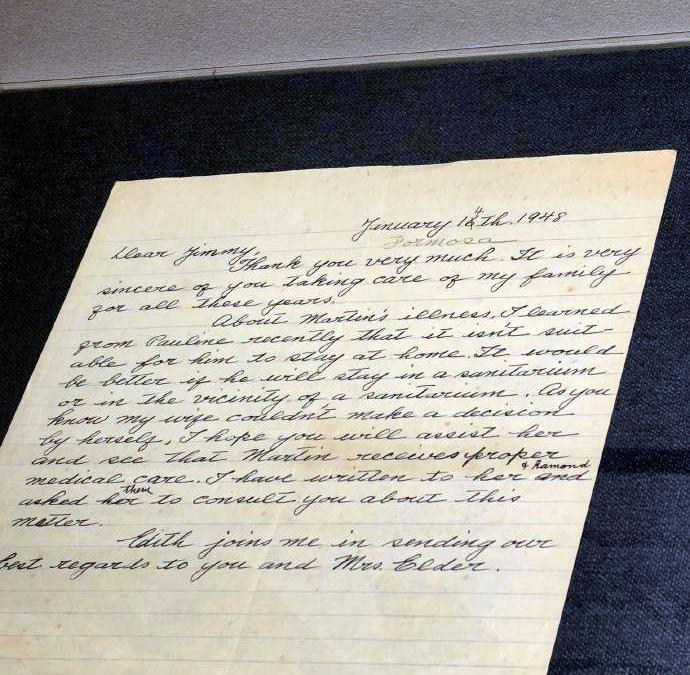 January 14th. 1948
Formosa
Dear Jimmy,
Thank you very much. It is very
sincere of you taking care of my family
for all these years.
About Martin's illness, I learned
from Pauline recently that it isn't suit-
able for him to stay at home. It would
be better if he will stay in a sanitarium
or in the vicinity of a sanitarium. As you
know my wife couldn't make a decision
by herself, I hope you will assist her
and see that Martin receives proper
medical care. I have written to her & Ramond and
asked them to consult you about this
matter.
Edith joins me in sending our
best regards to you and Mrs. Elder.